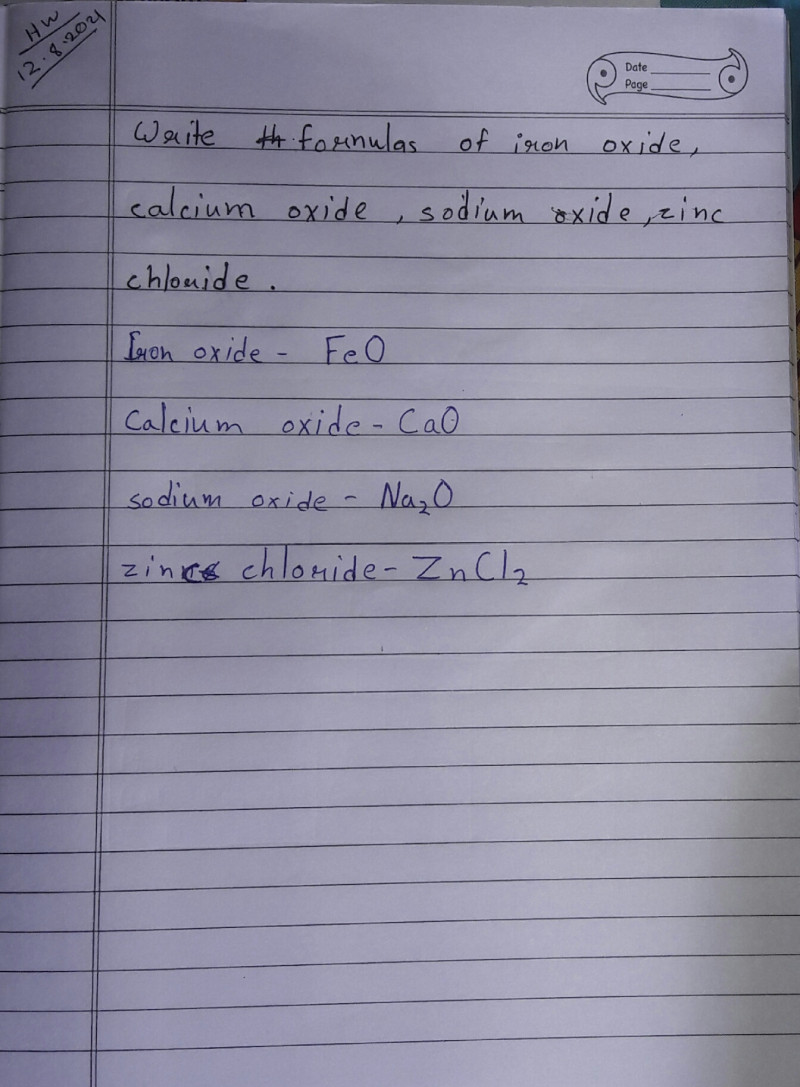 HW
12.8.2021
Date
Page
Write formulas of iron oxide,
calcium oxide, sodium oxide, zinc
chloride.
Iron oxide - FeO
Calcium oxide - CaO
sodium oxide - Na₂O
zinc chloride - ZnCl₂